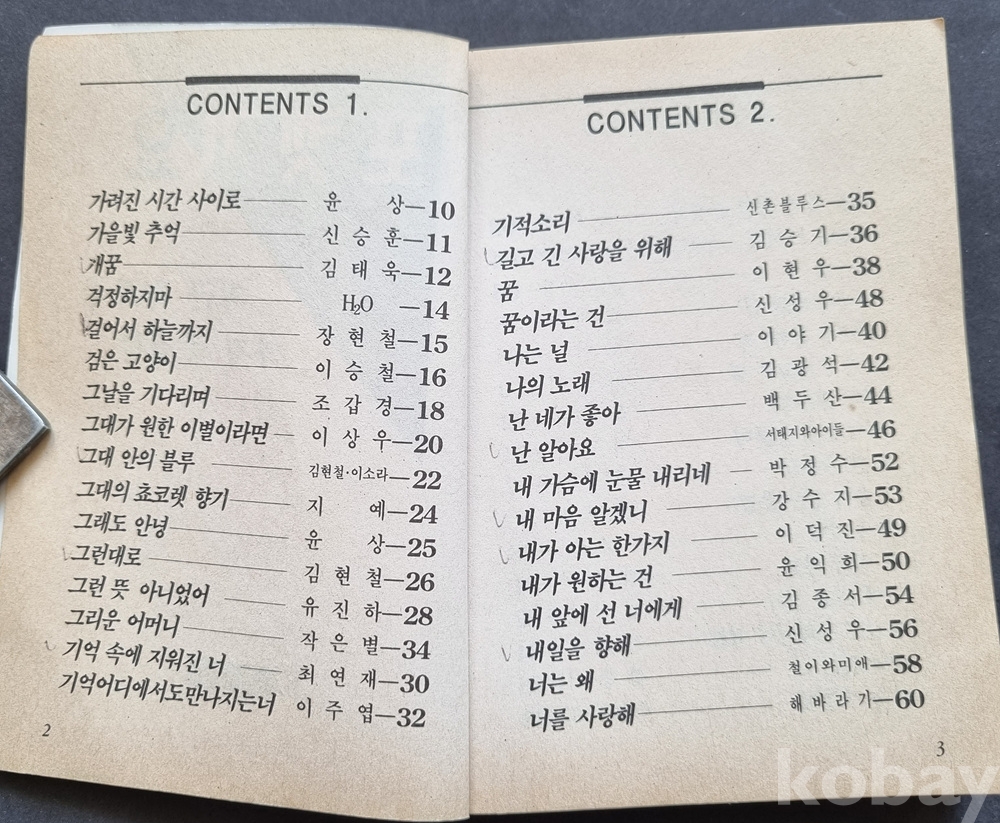 CONTENTS 1.
가려진 시간 사이로 윤 상—10
가을빛 추억 신 승 훈—11
개꿈 김 태 욱—12
걱정하지마 H₂O —14
걸어서 하늘까지 장 현 철—15
검은 고양이 이 승 철—16
그날을 기다리며 조 갑 경—18
그대가 원한 이별이라면 이 상 우—20
그대 안의 블루 김현철·이소라—22
그대의 쵸코렛 향기 지 예—24
그래도 안녕 윤 상—25
그런대로 김 현 철—26
그런 뜻 아니었어 유 진 하—28
그리운 어머니 작 은 별—34
기억 속에 지워진 너 최 연 재—30
기억어디에서도만나지는너 이 주 엽—32
2
CONTENTS 2.
기적소리 신촌블루스—35
길고 긴 사랑을 위해 김 승 기—36
꿈 이 현 우—38
꿈이라는 건 신 성 우—48
나는 널 이 야 기—40
나의 노래 김 광 석—42
난 네가 좋아 백 두 산—44
난 알아요 서태지와아이들—46
내 가슴에 눈물 내리네 박 정 수—52
내 마음 알겠니 강 수 지—53
내가 아는 한가지 이 덕 진—49
내가 원하는 건 윤 익 희—50
내 앞에 선 너에게 김 종 서—54
내일을 향해 신 성 우—56
너는 왜 철이와미애—58
너를 사랑해 해 바 라 기—60
3
kobay